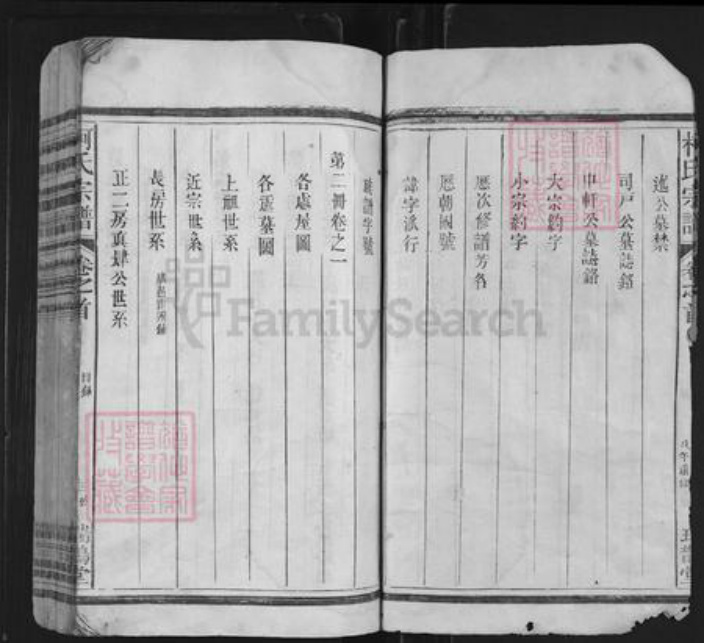 述公墓禁
司戶公墓誌銘
中軒公墓誌銘
大宗約字
小宗約字
歷次修譜芳名
歷朝國號
諱字派行
領譜字號
第二冊卷之一
各處屋圖
各處墓圖
上祖世系
近宗世系
長房世系
正二房貞肆公世系
氏宗譜
卷之首
目錄
氏宗譜
卷之首
FamilySearch